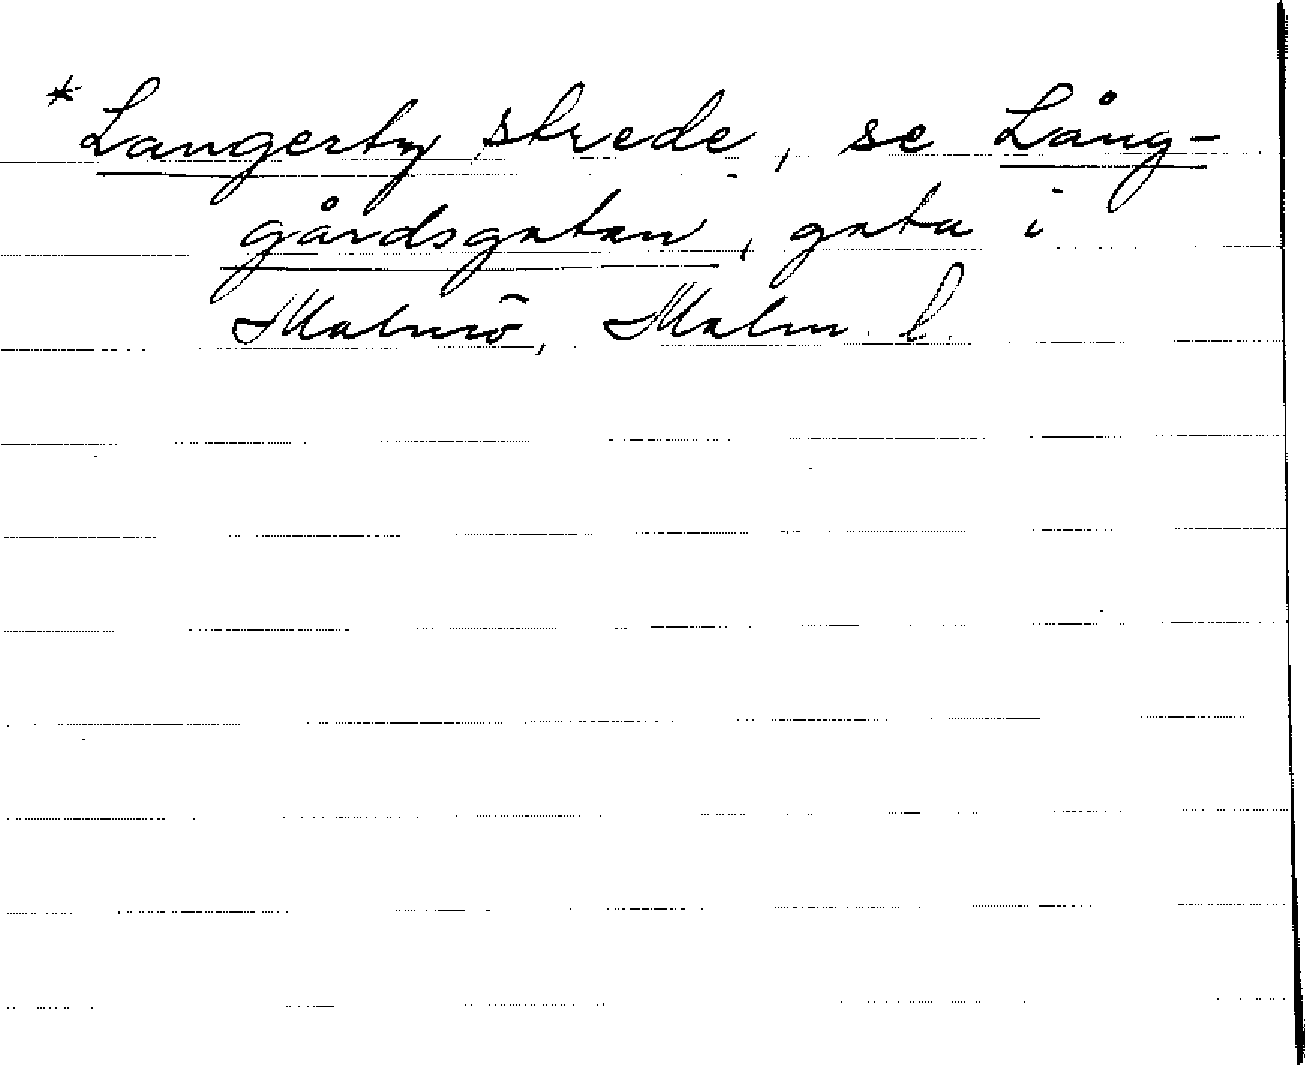 * Langerby strede, se Lång-
gårdsgatan, gata i
Malmö, Malm l.